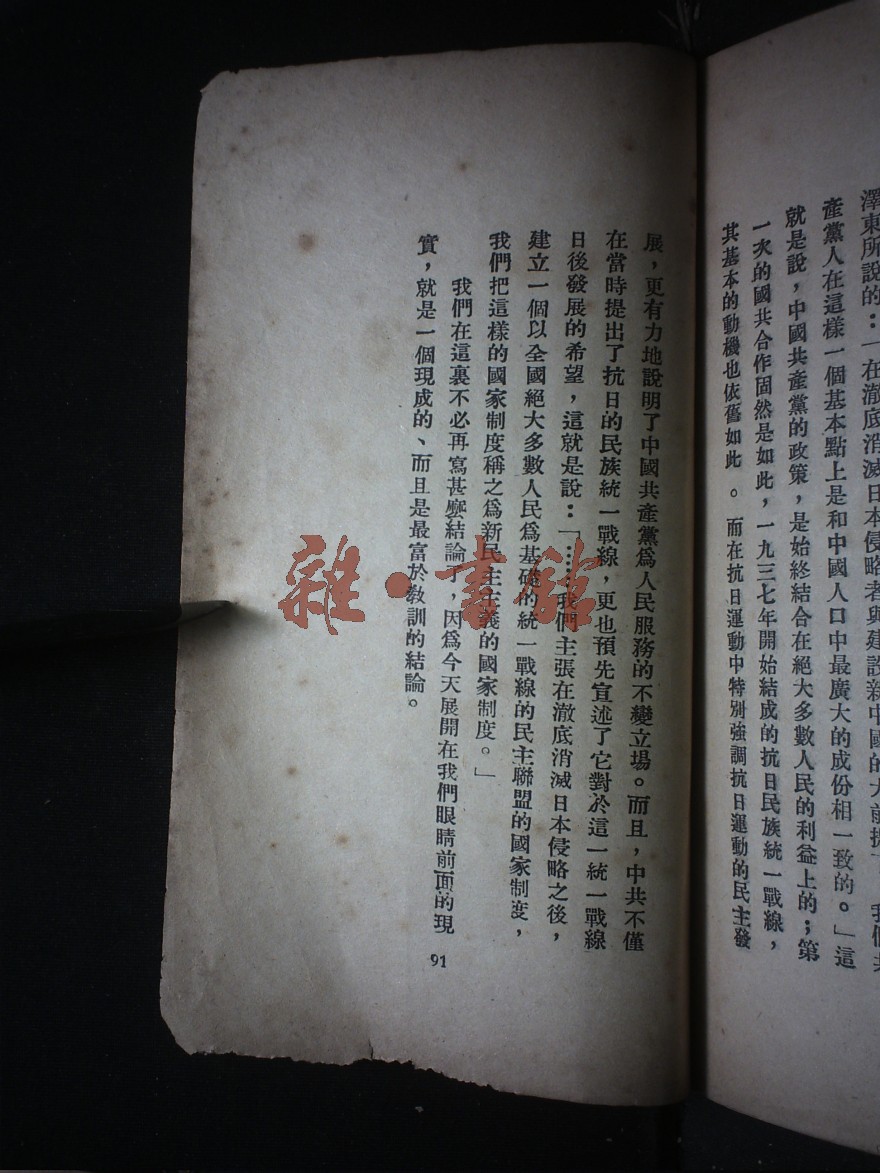 澤東所說的：「在澈底消滅日本侵略者與建設新中國的大前提下，我們共
產黨人在這樣一個基本點上是和中國人口中最廣大的成份相一致的。」這
就是說，中國共產黨的政策，是始終結合在絕大多數人民的利益上的；第
一次的國共合作固然是如此，一九三七年開始結成的抗日民族統一戰線，
其基本的動機也依舊如此。而在抗日運動中特別強調抗日運動的民主發
展，更有力地說明了中國共產黨爲人民服務的不變立場。而且，中共不僅
在當時提出了抗日的民族統一戰線，更也預先宣述了它對於這一統一戰線
日後發展的希望，這就是說：「……我們主張在澈底消滅日本侵略之後，
建立一個以全國絕大多數人民爲基礎的統一戰線的民主聯盟的國家制度，
我們把這樣的國家制度稱之爲新民主主義的國家制度。」
我們在這裏不必再寫甚麼結論了，因爲今天展開在我們眼睛前面的現
實，就是一個現成的、而且是最富於教訓的結論。
91
雜·書館